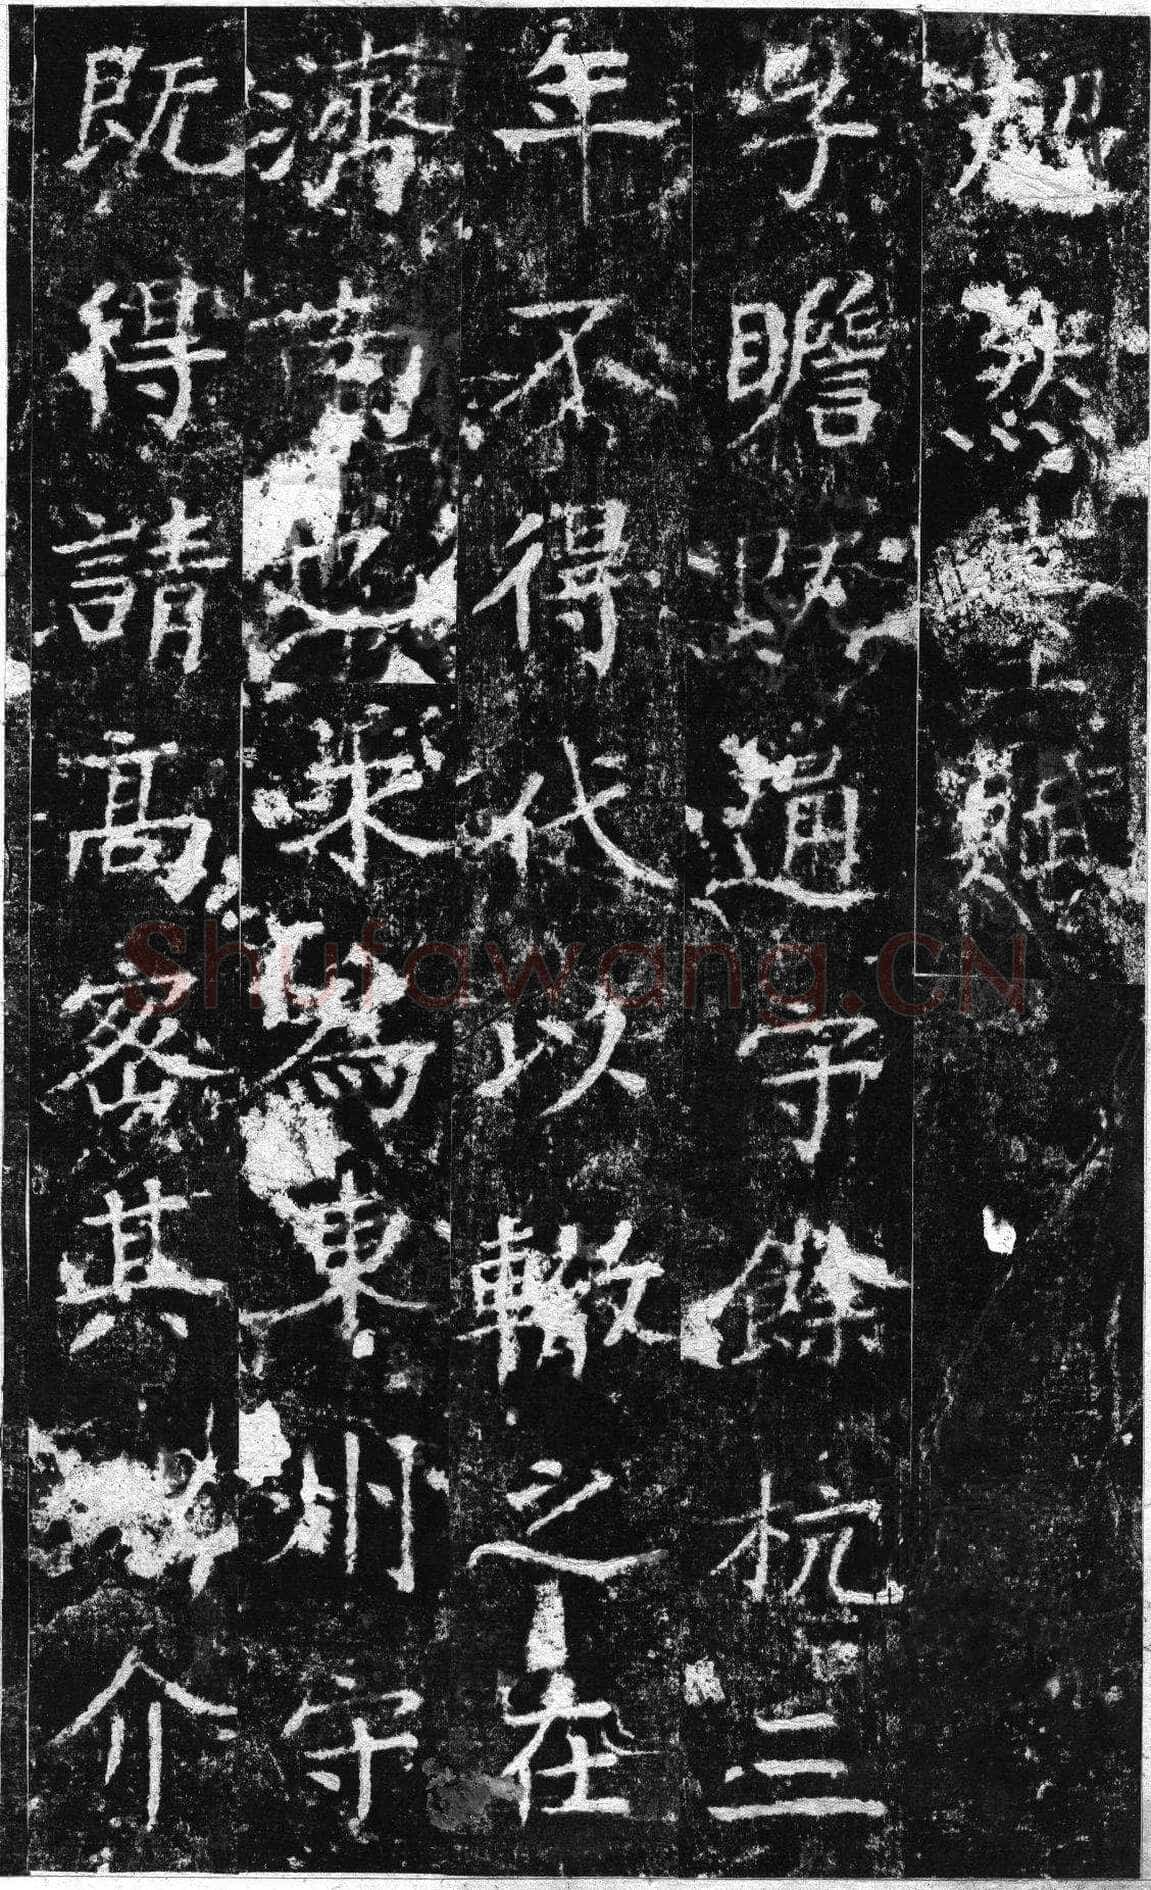 超然臺賦
子瞻以通守餘杭三
年不得代以轍之在
濟南也求為東州守
既得請高密其地介
Shufawang.CN